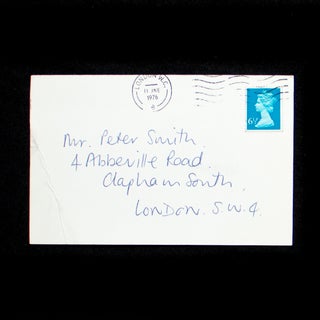 LONDON W.C.
11 JNE
1976
6½
Mr. Peter Smith.
4 Abbeville Road.
Clapham South,
LONDON. S.W.4.